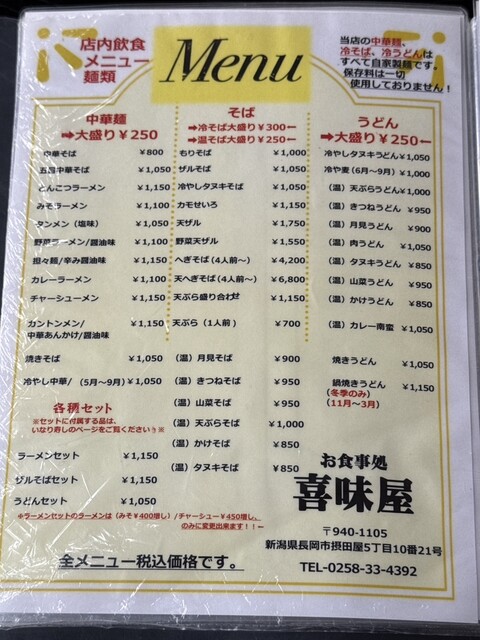 店内飲食
メニュー
麺類
Menu
当店の中華麺、
冷そば、冷うどんは
すべて自家製麺です。
保存料は一切
使用しておりません!
中華麺
➡大盛り¥250
中華そば ¥800
五目中華そば ¥1,050
とんこつラーメン ¥1,150
みそラーメン ¥1,100
タンメン(塩味) ¥1,050
野菜ラーメン/醤油味 ¥1,100
担々麺/辛み醤油味 ¥1,150
カレーラーメン ¥1,100
チャーシューメン ¥1,150
カントンメン/ ¥1,150
中華あんかけ/醤油味
焼きそば ¥1,050
冷やし中華/(5月~9月)¥1,050
各種セット
※セットに付属する品は、
いなり寿しのページをご覧ください
ラーメンセット ¥1,150
ザルそばセット ¥1,150
うどんセット ¥1,050
※ラーメンセットのラーメンは(みそ¥400増し)/チャーシュー¥450増し、
のみに変更出来ます!!ー
そば
➡冷そば大盛り¥300ー
➡温そば大盛り¥250ー
もりそば ¥1,000
ザルそば ¥1,050
冷やしタヌキそば ¥1,050
カモせいろ ¥1,150
天ザル ¥1,750
野菜天ザル ¥1,550
へぎそば(4人前~) ¥4,200
天へぎそば(4人前~) ¥6,800
天ぷら盛り合わせ ¥1,150
天ぷら(1人前) ¥700
(温)月見そば ¥900
(温)きつねそば ¥950
(温)山菜そば ¥950
(温)天ぷらそば ¥1,000
(温)かけそば ¥850
(温)タヌキそば ¥850
うどん
➡大盛り¥250ー
冷やしタヌキうどん ¥1,050
冷や麦(6月~9月) ¥1,000
(温)天ぷらうどん ¥1,000
(温)きつねうどん ¥950
(温)月見うどん ¥900
(温)肉うどん ¥1,050
(温)タヌキうどん ¥850
(温)山菜うどん ¥950
(温)かけうどん ¥850
(温)カレー南蛮 ¥1,050
焼きうどん ¥1,050
鍋焼きうどん ¥1,150
(冬季のみ)
(11月~3月)
お食事処
喜味屋
〒940-1105
新潟県長岡市摂田屋5丁目10番21号
TEL-0258-33-4392
全メニュー税込価格です。